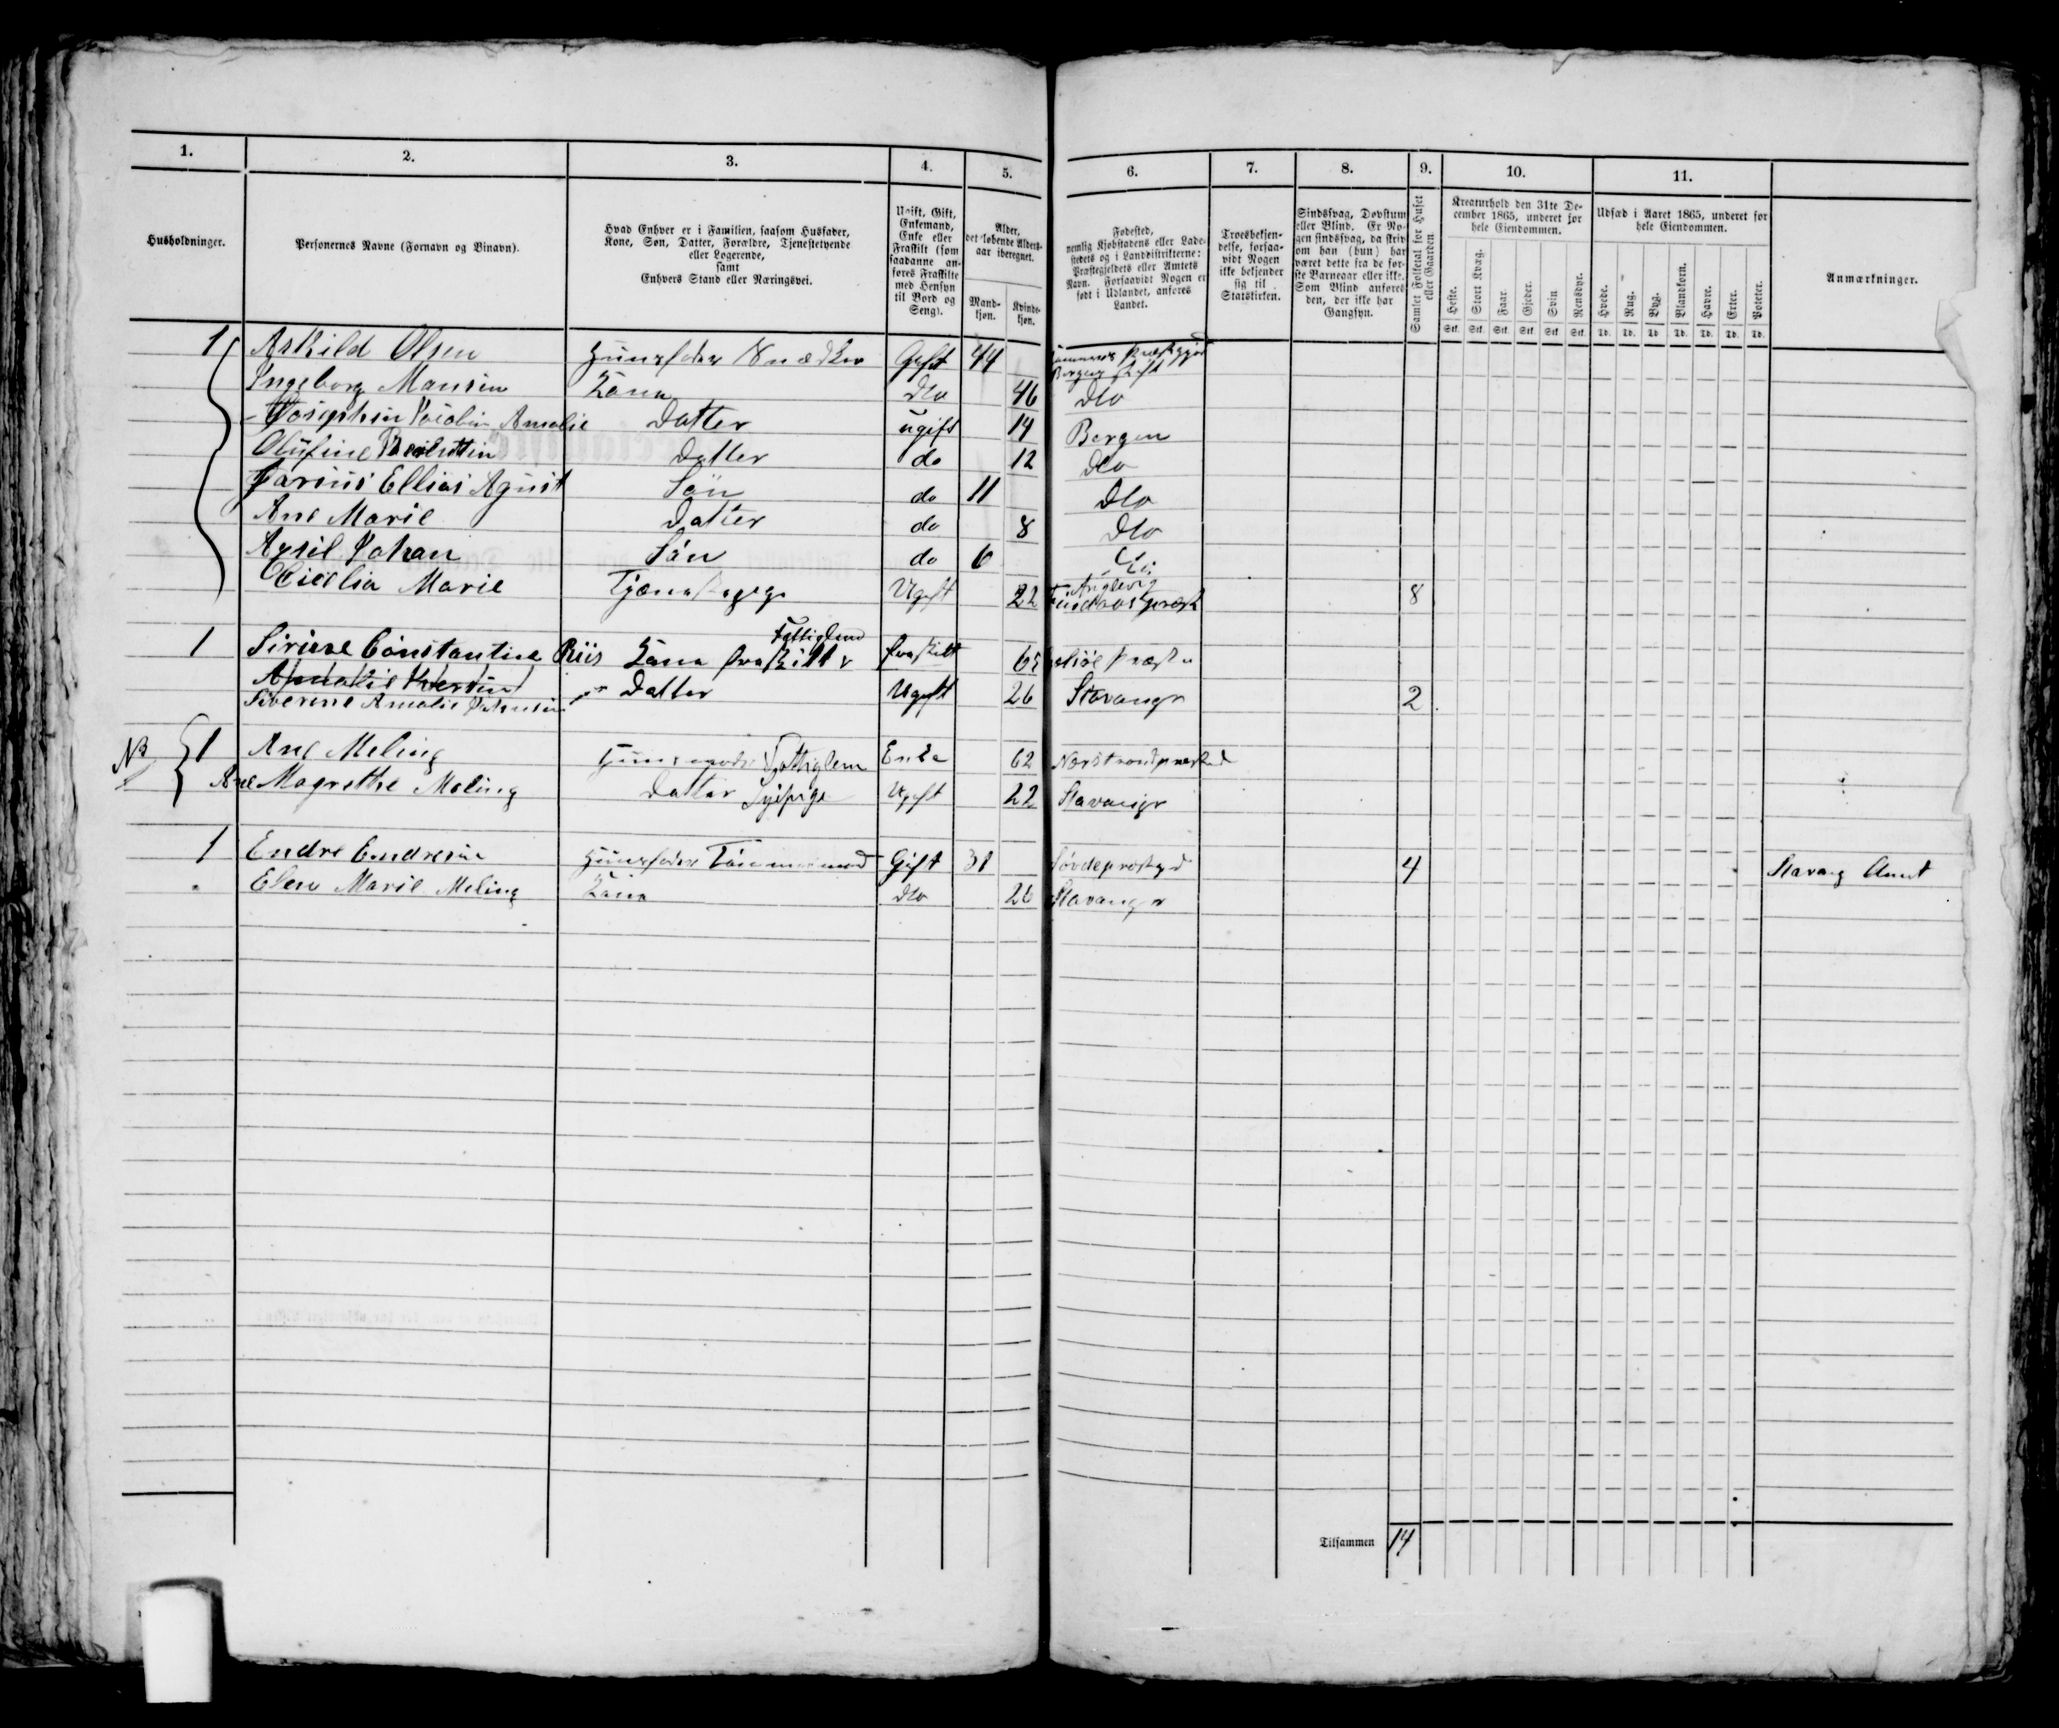 1. 2. 3. 4. 5. 6. 7. 8. 9. 10. 11.
Husholdninger.
Personernes Navne (Fornavn og Binavn).
Hvad Enhver er i Familien, saasom Husfader,
Kone, Søn, Datter, Forældre, Tjenestetyende
eller Logerende,
samt
Enhvers Stand eller Næringsvei.
Ugift, Gift,
Enkemand,
Enke eller
Fraskilt (som
saadanne an-
føres Fraskilte
med Hensyn
til Bord og
Seng).
Alder,
det løbende Alders-
aar iberegnet.
Mand-
kjøn.
Kvinde-
kjøn.
Fødested,
nemlig Kjøbstadens eller Lade-
stedets og i Landdistrikterne:
Præstegjeldets eller Amtets
Navn. Forsaavidt Nogen er
født i Udlandet, anføres
Landet.
Troesbekjen-
delse, forsaa-
vidt Nogen
ikke bekjender
sig til
Statskirken.
Sindssvag, Døvstum
eller Blind. Er No-
gen sindssvag, da skriv
om han (hun) har
været dette fra de før-
ste Barneaar eller ikke.
Som Blind anføres
den, der ikke har
Gangsyn.
Samlet Folketal for Huset
eller Gaarden
Kreaturhold den 31te De-
cember 1865, underet for
hele Eiendommen.
Heste. Stort Kvæg. Faar. Gjeder. Svin. Rensdyr.
Stk. Stk. Stk. Stk. Stk. Stk.
Udsæd i Aaret 1865, underet for
hele Eiendommen.
Hvede. Rug. Byg. Blandkorn. Havre. Erter. Poteter.
Td. Td. Td. Td. Td. Td. Td.
Anmærkninger.
1 Askild Olsen Huusfader Snedker Gift 44 Præstegjed
Bergens Stift
Ingeborg Mansen Kone Dto 46 Dto
Josephin Jacobin Amalie Datter ugift 14 Bergen
Olufine Datter do 12 Dto
Ellias Agust Søn do 11 Dto
Ane Marie Datter do 8 Dto
Axsil Johan Søn do 6
Cicelia Marie Tjænestepige Ugift 22 8
1 Sirine Constantine Riis Kone fraskilt Fattiglem fraskilt 65
Severine Amalie Datter Ugift 26 Stavanger 2
NB 1 Ane Meling Huusmoder Fattiglem Enke 62
Ane Magrethe Meling Datter Sypige Ugift 22 Stavanger
1 Endre Endresen Huusfader Tømmermand Gift 31 4 Stavang Amt
Elen Marie Meling Kone Dto 26 Stavanger
Tilsammen 14